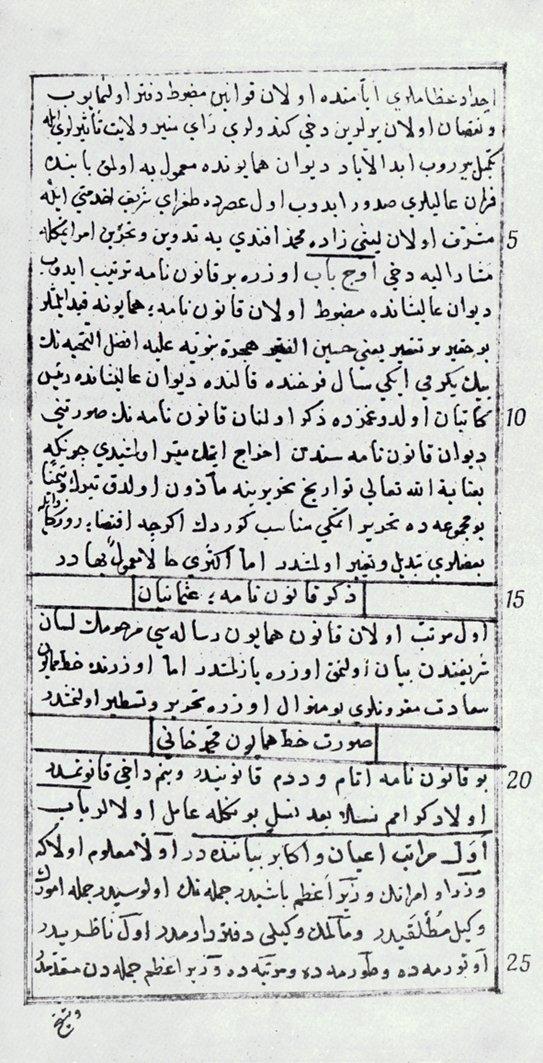 اجداد عظاملری ایامنده اولان قوانین مضبوط دفتر اولنمایوب
و نقصان اولان یرلرین دخی کندولری رای منیر ولایت تأثیرلری ایله
تکمیل بیوروب ابد الآباد دیوان همایونده معمول به اولمق بابنده
فرمان عالیلری صدور ایدوب اول عصرده طغرای شریف خدمتی ایله
5
مشرف اولان لیثی زاده محمد افندی یه تدوین و تحریرین امر ایتمکله
مشار الیه دخی اوچ باب اوزره بر قانون نامه ترتیب ایدوب
دیوان عالیشانده مضبوط اولان قانون نامهء همایونه قید ایتمشلر
بو حقیر پر تقصیر یعنی حسین الفقیر هجرة نبویه علیه افضل التحیه نك
بیك یکرمی ایکی سال فرخنده فالنده دیوان عالیشانده رئیس
10
کاتبان اولدوغمزده ذکر اولنان قانون نامه نك صورتنی
دیوان قانون نامه سندن اخراج ایتمك میسر اولمش ایدی چونکه
بعنایة الله تعالی تواریخ تحریرینه مأذون اولدق تبرکا و تیمنا
بو مجموعه ده تحریر ایتمکی مناسب کوردك اکرچه اقتضاء روزکار ایله
بعضلری تبدیل و تغییر اولمشدر اما اکثری حالا معمول بها در
15
ذکر قانون نامهء عثمانیان
اول مرتب اولان قانون همایون رساله سی مرحومك لسان
شریفندن بیان اولنمق اوزره یازلمشدر اما اوزرنده خط همایون
سعادت مقرونلری بو منوال اوزره تحریر و تسطیر اولنمشدر
صورت خط همایون محمد خانی
20
بو قانون نامه اتام و ددم قانونیدر و بنم داخی قانونمدر
اولاد کرامم نسلا بعد نسل بونکله عامل اولالر باب
اول مراتب اعیان و اکابر بیاننده در اولا معلوم اولا که
وزرا و امرانك وزیر اعظم باشیدر جمله نك اولوسیدر جمله امورك
وکیل مطلقیدر و مالمك وکیلی دفترداردر اول ناظریدر
25
اوتورمه ده و طورمه ده و مرتبه ده وزیر اعظم جمله دن مقدمدر
و شیخ